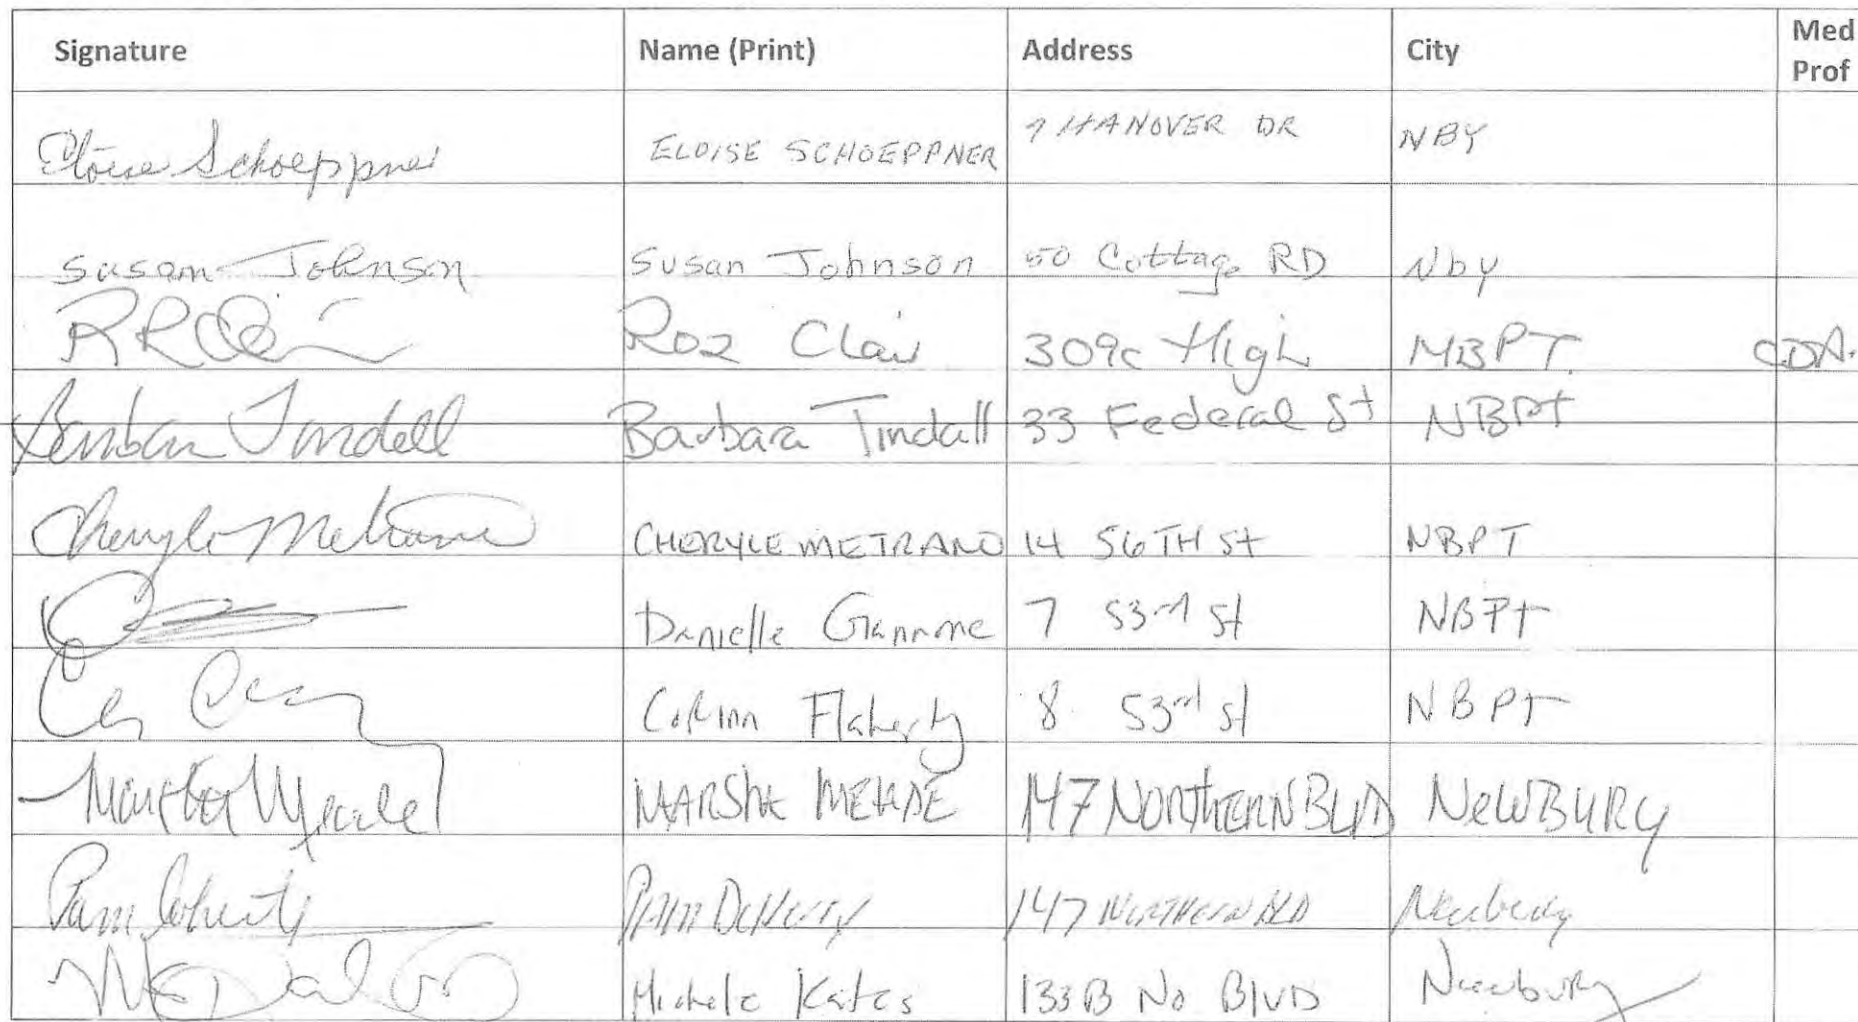 Signature Name (Print) Address City Med Prof
Eloise Schoeppner ELOISE SCHOEPPNER 7 HANOVER DR NBY
Susan Johnson Susan Johnson 50 Cottage RD Nby
Roz Clair 309c High NBPT CDA.
Barbara Tindall Barbara Tindall 33 Federal St NBPt
Cheryle Metrano CHERYLE METRANO 14 56TH St NBPT
Danielle Giannone 7 53rd St NBPt
Corinn Flaherty 8 53rd St NBPT
Marsha Meade MARSHA MEADE 147 NORTHERN BLVD NewBURy
Pam Doherty PAM DOHERTY 147 NORTHERN BLD Newbury
Michele Kates 133B No BLVD Newbury